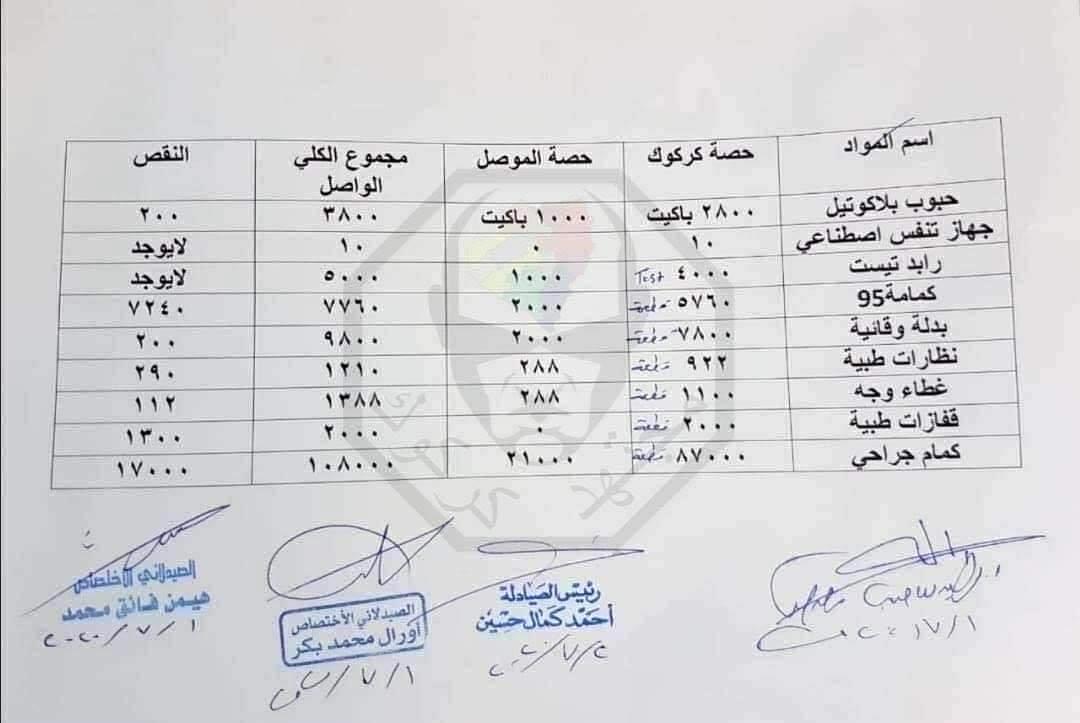 اسم المواد حصة كركوك حصة الموصل مجموع الكلي الواصل النقص
حبوب بلاكوتيل ٢٨٠٠ باكيت ١٠٠٠ باكيت ٣٨٠٠ ٢٠٠
جهاز تنفس اصطناعي ١٠ ٠ ١٠ لايوجد
رابد تيست ٤٠٠٠ Test ١٠٠٠ ٥٠٠٠ لايوجد
كمامة95 ٥٧٦٠ قطعة ٢٠٠٠ ٧٧٦٠ ٧٢٤٠
بدلة وقائية ٧٨٠٠ قطعة ٢٠٠٠ ٩٨٠٠ ٢٠٠
نظارات طبية ٩٢٢ قطعة ٢٨٨ ١٢١٠ ٢٩٠
غطاء وجه ١١٠٠ قطعة ٢٨٨ ١٣٨٨ ١١٢
قفازات طبية ٢٠٠٠ قطعة ٠ ٢٠٠٠ ١٣٠٠
كمام جراحي ٨٧٠٠٠ قطعة ٢١٠٠٠ ١٠٨٠٠٠ ١٧٠٠٠
رئيس الصيادلة
أحمد كمال حسين
الصيدلاني الأختصاص
أورال محمد بكر
٧/١
الصيدلاني الاختصاص
هيمن فائق محمد
٢٠٢٠/٧/١